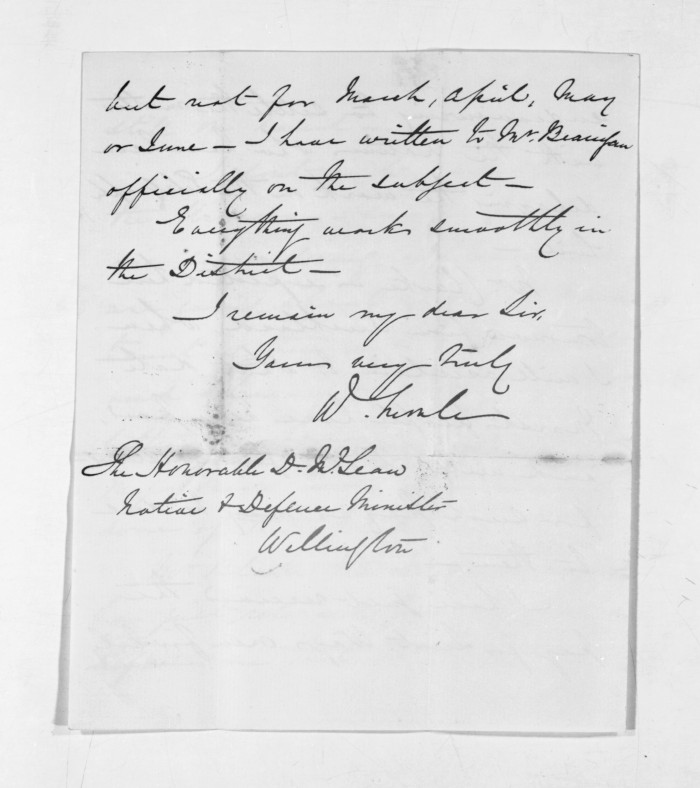 but not for March, April, May
or June — I have written to Mr.
officially on the subject —
Everything works smoothly in
the District —
I remain my dear Sir,
Yours very truly
W.
The Honorable D. McLean
Native & Defence Minister
Wellington